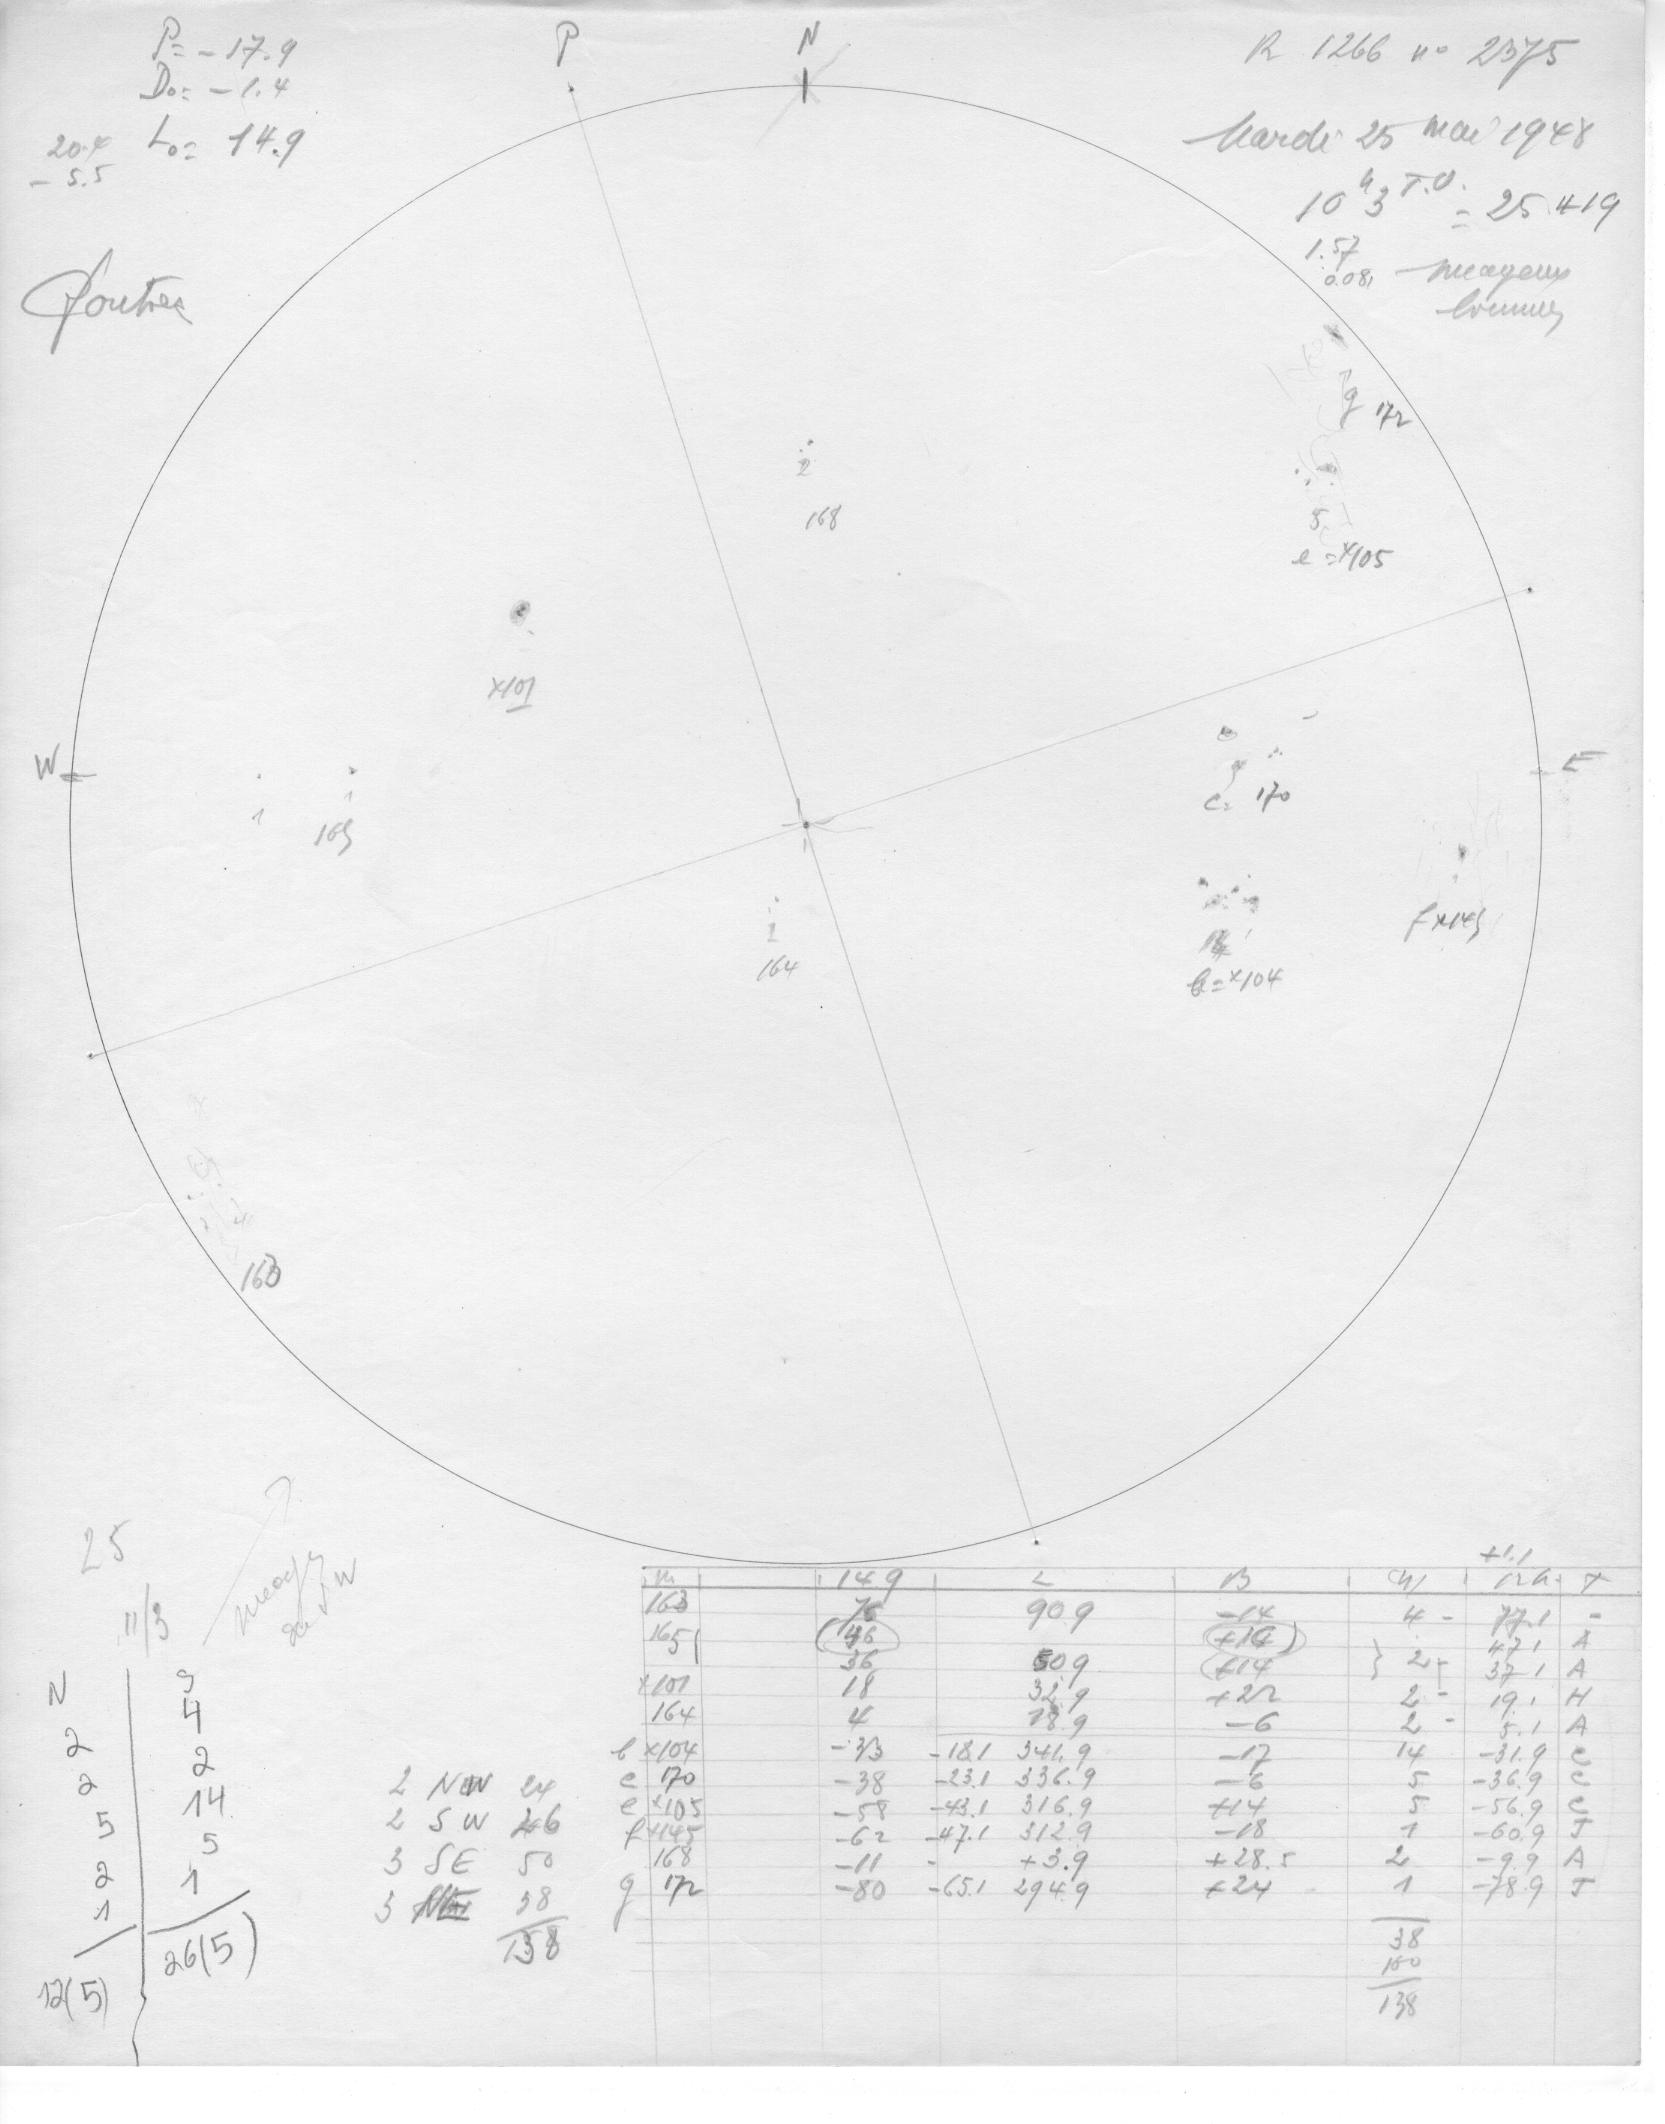 P = -17.9
D₀ = -1.4
L₀ = 14.9
20.4
- 5.5
P
N
R 1266 no 2375
Mardi 25 mai 1948
10 h 3 T.U. = 25.419
1.57
0.081
nuageux
brumeux
g 172
2
168
5
e = x105
x101
W
E
1
1
165
c = 170
2
164
14
b = x104
f x145
163
25
11/3
N S
2 4
2 2
5 14
2 5
1 1
12(5) 26(5)
2 NW 24
2 SW 26
3 SE 50
3 NE 38
138
+1.1
n 14.9 L B W 12h T
163 76 90.9 -14 4 - 77.1 -
165 46 +14 47.1 A
36 50.9 +14 2 - 37.1 A
x101 18 32.9 +22 2 - 19.1 H
164 4 18.9 -6 2 - 5.1 A
b x104 -33 -18.1 341.9 -17 14 -31.9 C
c 170 -38 -23.1 336.9 -6 5 -36.9 C
e x105 -58 -43.1 316.9 +14 5 -56.9 C
f x145 -62 -47.1 312.9 -18 1 -60.9 J
168 -11 - +3.9 +28.5 2 -9.9 A
g 172 -80 -65.1 294.9 +24 1 -78.9 J
38
100
138